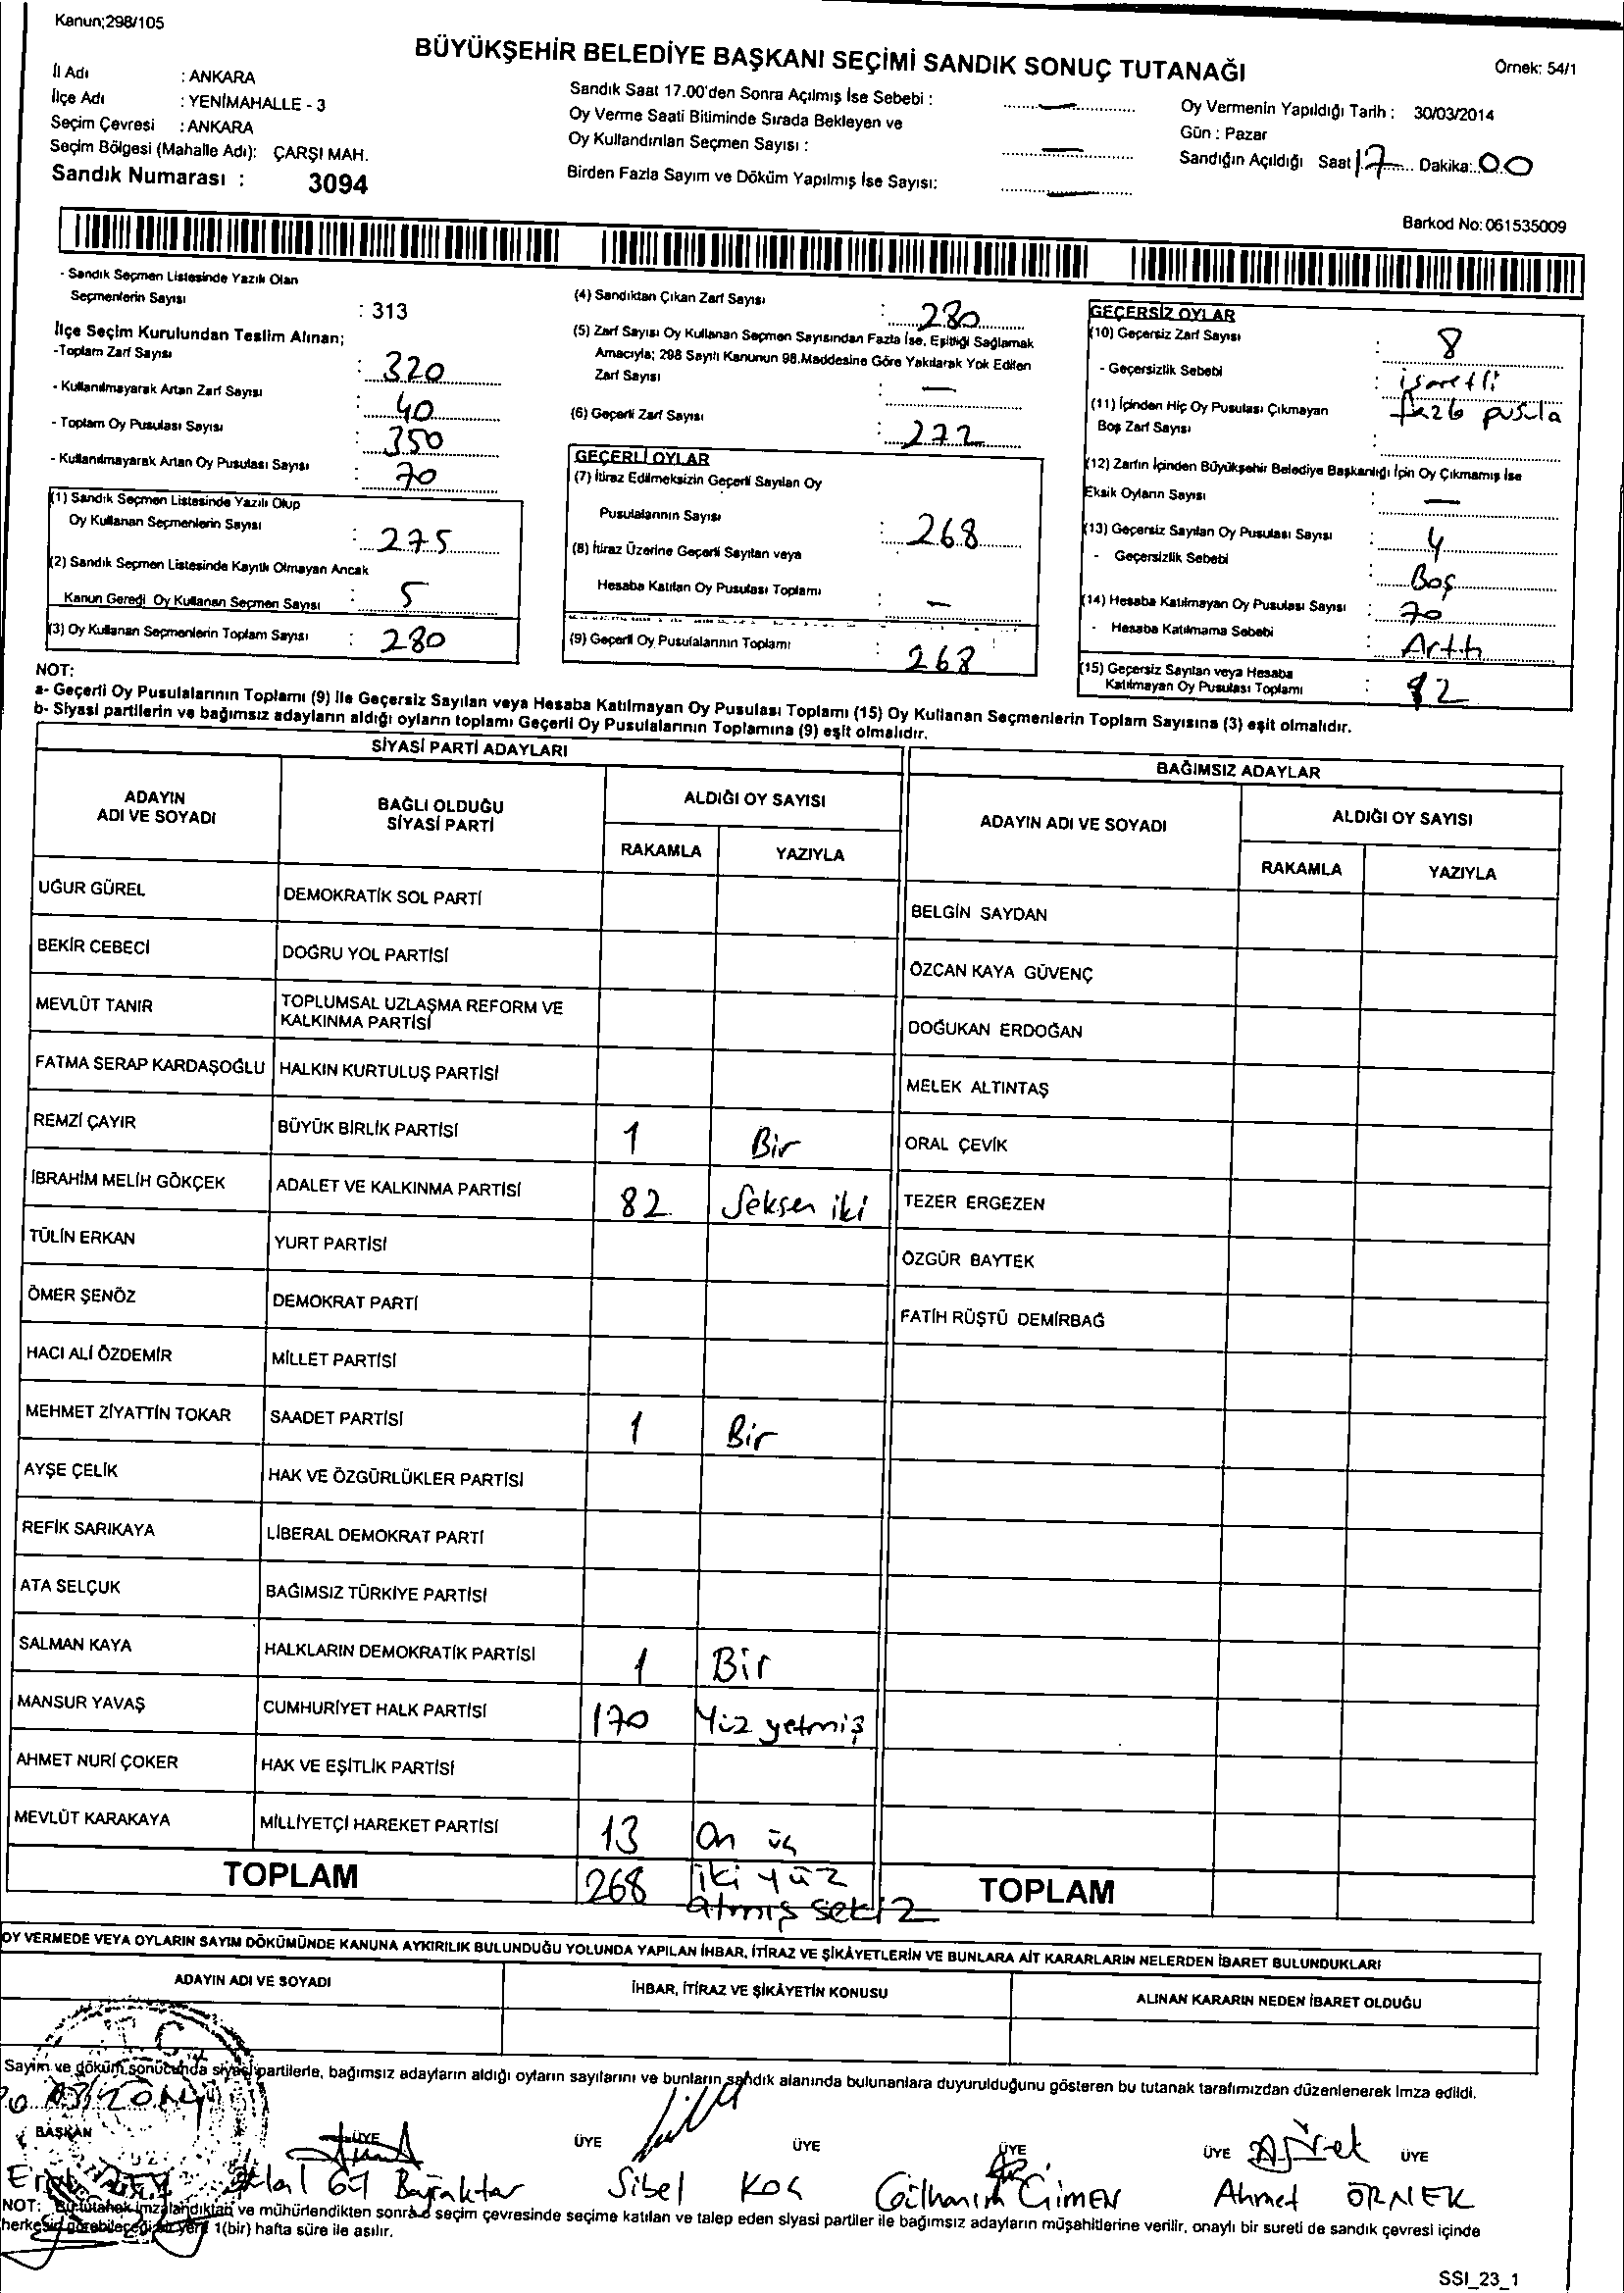 Kanun;298/105
BÜYÜKŞEHİR BELEDİYE BAŞKANI SEÇİMİ SANDIK SONUÇ TUTANAĞI
Örnek: 54/1
İl Adı : ANKARA
İlçe Adı : YENİMAHALLE - 3
Seçim Çevresi : ANKARA
Seçim Bölgesi (Mahalle Adı): ÇARŞI MAH.
Sandık Numarası : 3094
Sandık Saat 17.00'den Sonra Açılmış İse Sebebi : —
Oy Verme Saati Bitiminde Sırada Bekleyen ve
Oy Kullandırılan Seçmen Sayısı : —
Birden Fazla Sayım ve Döküm Yapılmış İse Sayısı: —
Oy Vermenin Yapıldığı Tarih : 30/03/2014
Gün : Pazar
Sandığın Açıldığı Saat 17 Dakika: 00
Barkod No: 061535009
- Sandık Seçmen Listesinde Yazılı Olan
Seçmenlerin Sayısı : 313
İlçe Seçim Kurulundan Teslim Alınan;
-Toplam Zarf Sayısı : 320
- Kullanılmayarak Artan Zarf Sayısı : 40
- Toplam Oy Pusulası Sayısı : 350
- Kullanılmayarak Artan Oy Pusulası Sayısı : 70
(1) Sandık Seçmen Listesinde Yazılı Olup
Oy Kullanan Seçmenlerin Sayısı : 275
(2) Sandık Seçmen Listesinde Kayıtlı Olmayan Ancak
Kanun Gereği Oy Kullanan Seçmen Sayısı : 5
(3) Oy Kullanan Seçmenlerin Toplam Sayısı : 280
(4) Sandıktan Çıkan Zarf Sayısı : 280
(5) Zarf Sayısı Oy Kullanan Seçmen Sayısından Fazla İse, Eşitliği Sağlamak
Amacıyla; 298 Sayılı Kanunun 98.Maddesine Göre Yakılarak Yok Edilen
Zarf Sayısı : —
(6) Geçerli Zarf Sayısı : 272
GEÇERLİ OYLAR
(7) İtiraz Edilmeksizin Geçerli Sayılan Oy
Pusulalarının Sayısı : 268
(8) İtiraz Üzerine Geçerli Sayılan veya
Hesaba Katılan Oy Pusulası Toplamı : —
(9) Geçerli Oy Pusulalarının Toplamı : 268
GEÇERSİZ OYLAR
(10) Geçersiz Zarf Sayısı : 8
- Geçersizlik Sebebi : işaretli
fazla pusula
(11) İçinden Hiç Oy Pusulası Çıkmayan
Boş Zarf Sayısı :
(12) Zarfın İçinden Büyükşehir Belediye Başkanlığı İçin Oy Çıkmamış İse
Eksik Oyların Sayısı : —
(13) Geçersiz Sayılan Oy Pusulası Sayısı : 4
- Geçersizlik Sebebi : Boş
(14) Hesaba Katılmayan Oy Pusulası Sayısı : 70
- Hesaba Katılmama Sebebi : Arttı
(15) Geçersiz Sayılan veya Hesaba
Katılmayan Oy Pusulası Toplamı : 82
NOT:
a- Geçerli Oy Pusulalarının Toplamı (9) ile Geçersiz Sayılan veya Hesaba Katılmayan Oy Pusulası Toplamı (15) Oy Kullanan Seçmenlerin Toplam Sayısına (3) eşit olmalıdır.
b- Siyasi partilerin ve bağımsız adayların aldığı oyların toplamı Geçerli Oy Pusulalarının Toplamına (9) eşit olmalıdır.
SİYASİ PARTİ ADAYLARI BAĞIMSIZ ADAYLAR
ADAYIN ADI VE SOYADI BAĞLI OLDUĞU SİYASİ PARTİ ALDIĞI OY SAYISI ADAYIN ADI VE SOYADI ALDIĞI OY SAYISI
RAKAMLA YAZIYLA RAKAMLA YAZIYLA
UĞUR GÜREL DEMOKRATİK SOL PARTİ BELGİN SAYDAN
BEKİR CEBECİ DOĞRU YOL PARTİSİ ÖZCAN KAYA GÜVENÇ
MEVLÜT TANIR TOPLUMSAL UZLAŞMA REFORM VE KALKINMA PARTİSİ DOĞUKAN ERDOĞAN
FATMA SERAP KARDAŞOĞLU HALKIN KURTULUŞ PARTİSİ MELEK ALTINTAŞ
REMZİ ÇAYIR BÜYÜK BİRLİK PARTİSİ 1 Bir ORAL ÇEVİK
İBRAHİM MELİH GÖKÇEK ADALET VE KALKINMA PARTİSİ 82 Seksen iki TEZER ERGEZEN
TÜLİN ERKAN YURT PARTİSİ ÖZGÜR BAYTEK
ÖMER ŞENÖZ DEMOKRAT PARTİ FATİH RÜŞTÜ DEMİRBAĞ
HACI ALİ ÖZDEMİR MİLLET PARTİSİ
MEHMET ZİYATTİN TOKAR SAADET PARTİSİ 1 Bir
AYŞE ÇELİK HAK VE ÖZGÜRLÜKLER PARTİSİ
REFİK SARIKAYA LİBERAL DEMOKRAT PARTİ
ATA SELÇUK BAĞIMSIZ TÜRKİYE PARTİSİ
SALMAN KAYA HALKLARIN DEMOKRATİK PARTİSİ 1 Bir
MANSUR YAVAŞ CUMHURİYET HALK PARTİSİ 170 Yüz yetmiş
AHMET NURİ ÇOKER HAK VE EŞİTLİK PARTİSİ
MEVLÜT KARAKAYA MİLLİYETÇİ HAREKET PARTİSİ 13 On üç
TOPLAM 268 iki yüz atmış sekiz TOPLAM
OY VERMEDE VEYA OYLARIN SAYIM DÖKÜMÜNDE KANUNA AYKIRILIK BULUNDUĞU YOLUNDA YAPILAN İHBAR, İTİRAZ VE ŞİKÂYETLERİN VE BUNLARA AİT KARARLARIN NELERDEN İBARET BULUNDUKLARI
ADAYIN ADI VE SOYADI İHBAR, İTİRAZ VE ŞİKÂYETİN KONUSU ALINAN KARARIN NEDEN İBARET OLDUĞU
T.C.
Sayım ve döküm sonucunda siyasi partilerle, bağımsız adayların aldığı oyların sayılarını ve bunların sandık alanında bulunanlara duyurulduğunu gösteren bu tutanak tarafımızdan düzenlenerek imza edildi.
03/2014
BAŞKAN ÜYE ÜYE ÜYE ÜYE ÜYE ÜYE
Bayraktar Sibel KOÇ Gülhanım ÇİMEN Ahmet ÖRNEK
NOT: Bu tutanak imzalandıktan ve mühürlendikten sonra o seçim çevresinde seçime katılan ve talep eden siyasi partiler ile bağımsız adayların müşahitlerine verilir, onaylı bir sureti de sandık çevresi içinde
herkesin görebileceği bir yere 1(bir) hafta süre ile asılır.
SSI_23_1